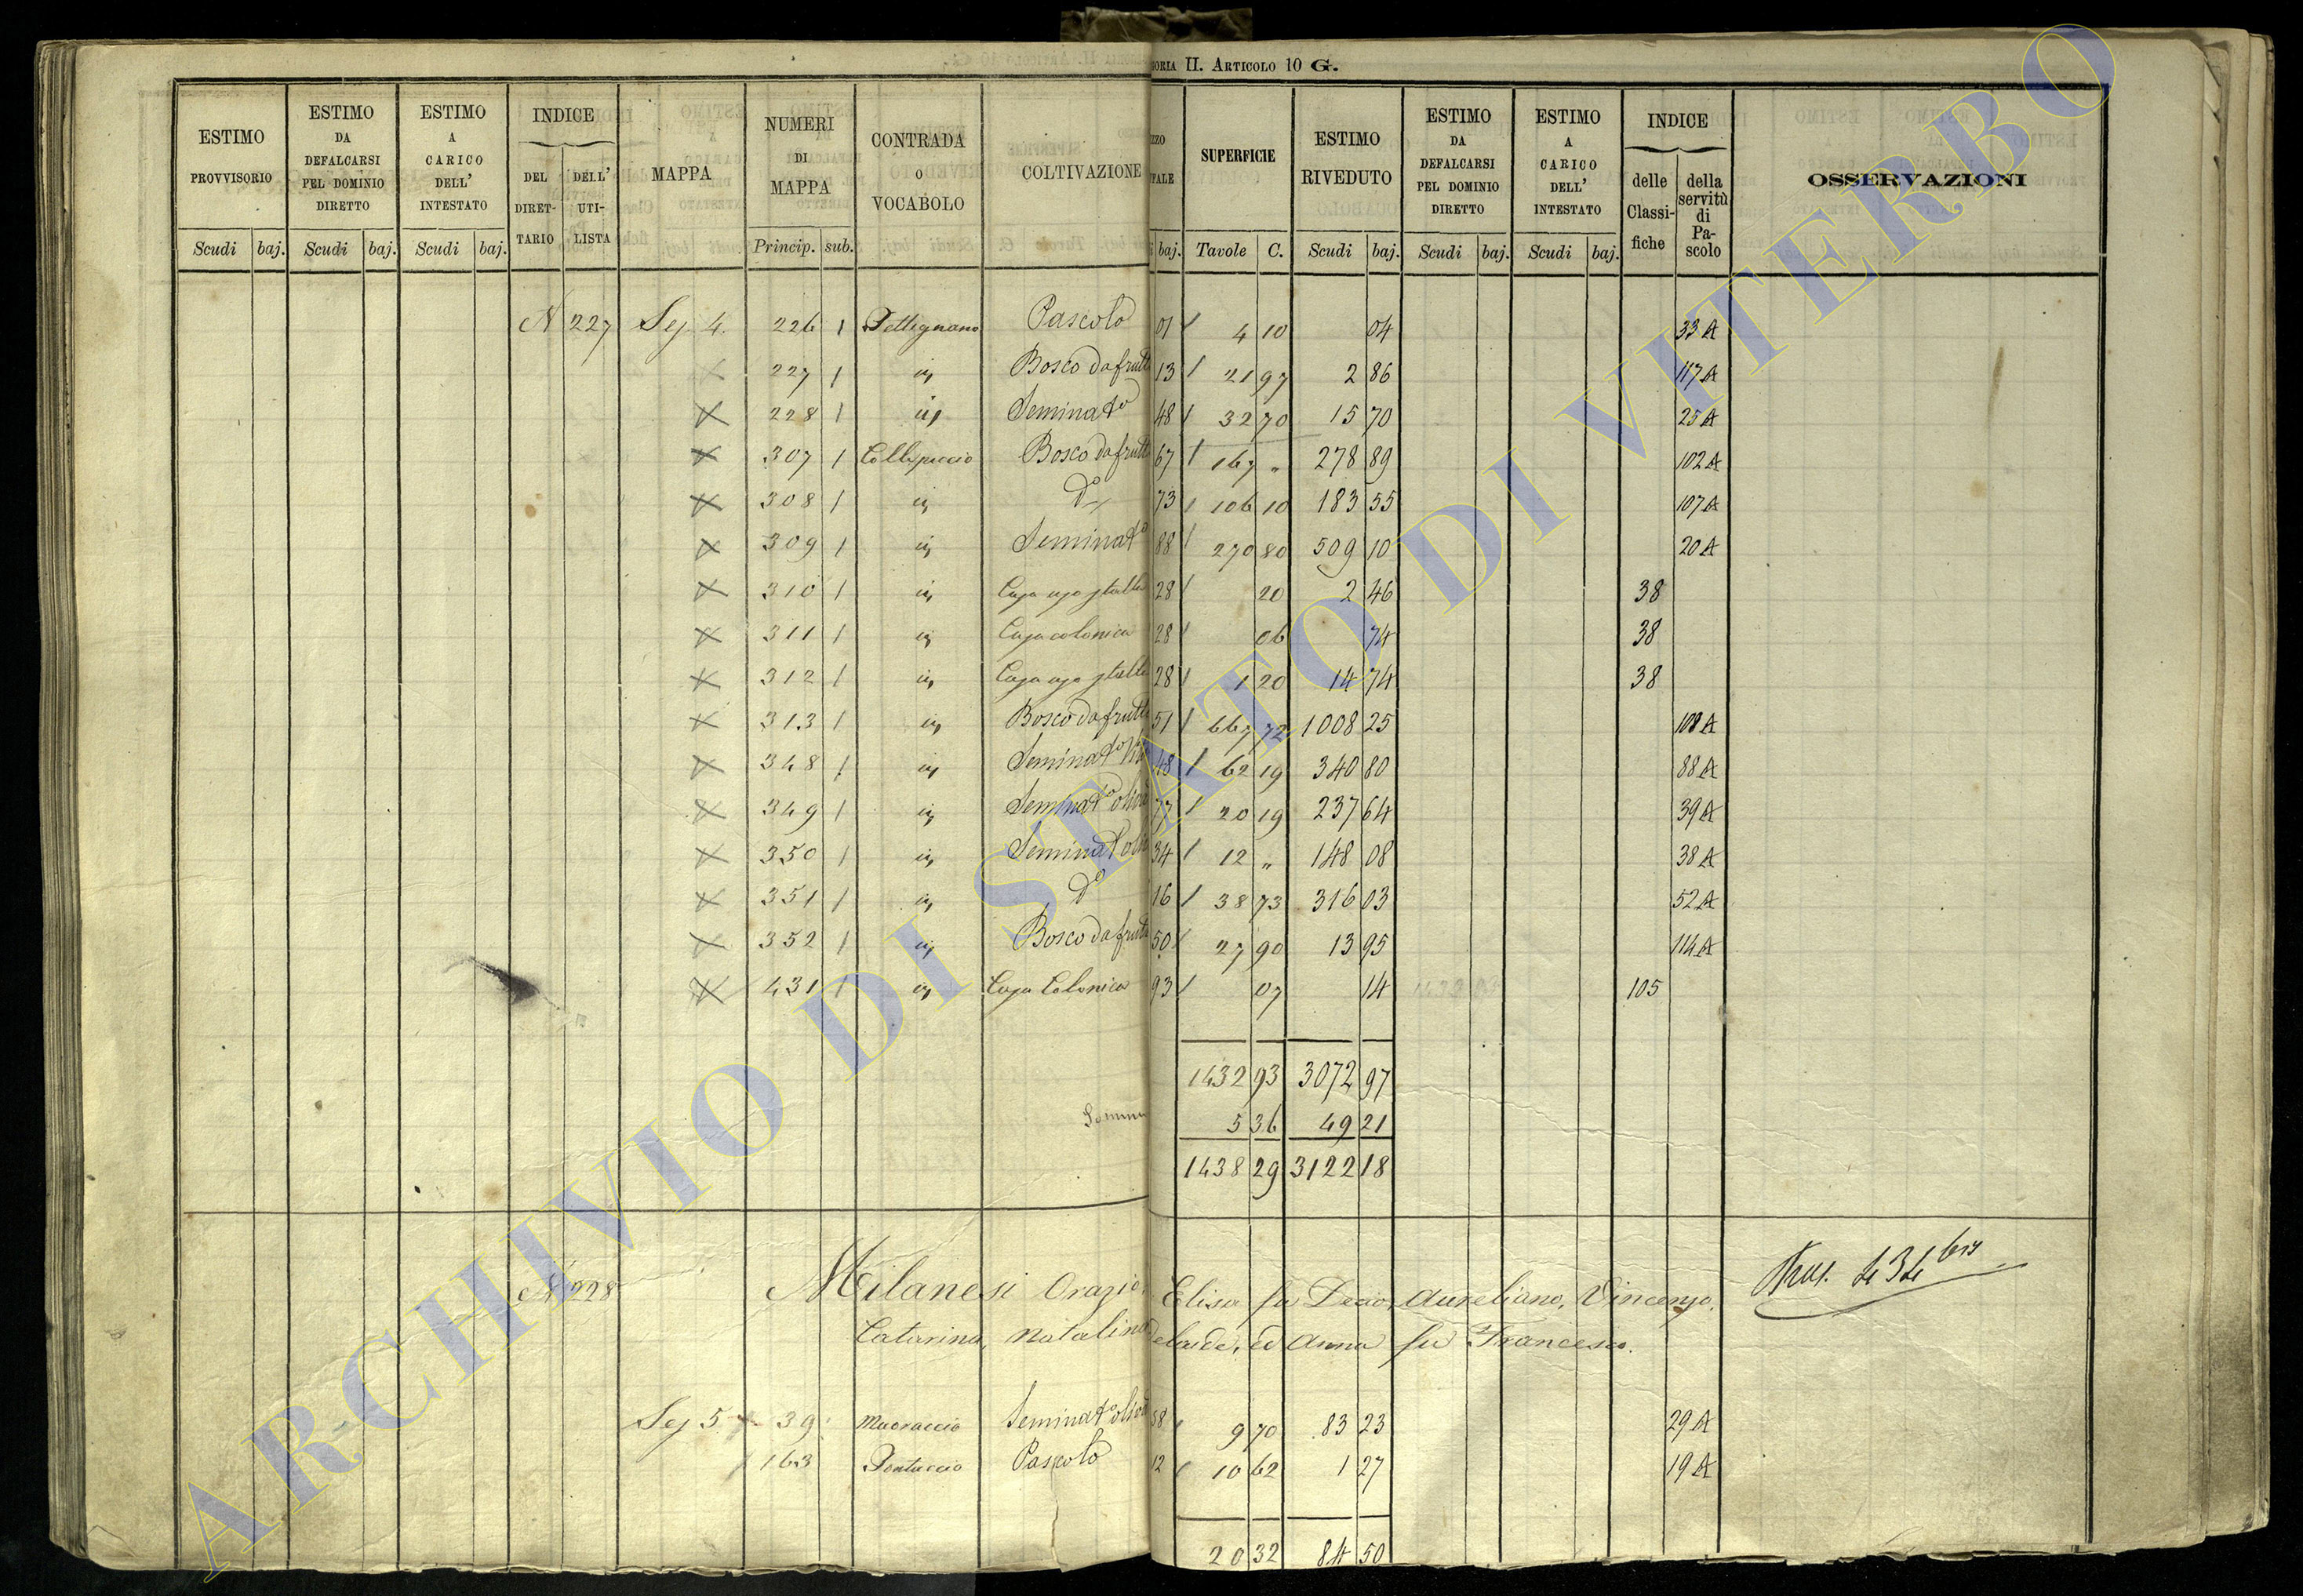 ORIA II. ARTICOLO 10 G.
ESTIMO PROVVISORIO
ESTIMO DA DEFALCARSI PEL DOMINIO DIRETTO
ESTIMO A CARICO DELL' INTESTATO
INDICE
DEL DIRET-TARIO
DELL' UTI-LISTA
MAPPA
NUMERI DI MAPPA
CONTRADA O VOCABOLO
COLTIVAZIONE
SUPERFICIE
ESTIMO RIVEDUTO
ESTIMO DA DEFALCARSI PEL DOMINIO DIRETTO
ESTIMO A CARICO DELL' INTESTATO
INDICE
delle Classi-fiche
della servitù di Pa-scolo
OSSERVAZIONI
Scudi baj. Scudi baj. Scudi baj. Princip. sub. baj. Tavole C. Scudi baj. Scudi baj. Scudi baj.
N 227 Sez. 4. 226 1 Pettignano Pascolo 01 4 10 04 33 A
227 1 Bosco da frutt 13 21 97 2 86 117 A
228 1 Seminato 48 32 70 15 70 25 A
307 1 Collepiccio Bosco da frutt 67 167 " 278 89 102 A
308 1 Do 73 106 10 183 55 107 A
309 1 Seminato 88 270 80 509 10 20 A
310 1 Casa uso stalla 28 20 2 46 38
311 1 Casa colonica 28 06 74 38
312 1 Casa uso stalla 28 1 20 14 74 38
313 1 Bosco da frutt 51 667 72 1008 25 A
348 1 Seminato 48 62 19 340 80 88 A
349 1 Seminato oliva 77 20 19 237 64 39 A
350 1 Seminat oliv 34 12 " 148 08 38 A
351 1 Do 16 38 73 316 03 52 A
352 1 Bosco da frutt 50 27 90 13 95 114 A
431 1 Casa Colonica 93 07 14 105
1432 93 3072 97
Somma 5 36 49 21
1438 29 3122 18
N 228 Milanesi Orazio, Elisa fu Decio, Aureliano, Vincenzo, 434 bis
Catarina, Natalina elaide, ed Anna fu Francesco.
Sez 5 39 Mucraccio Seminato oliva 58 9 70 83 23 29 A
163 Pontuccio Pascolo 12 10 62 1 27 19 A
20 32 84 50
ARCHIVIO DI STATO DI VITERBO